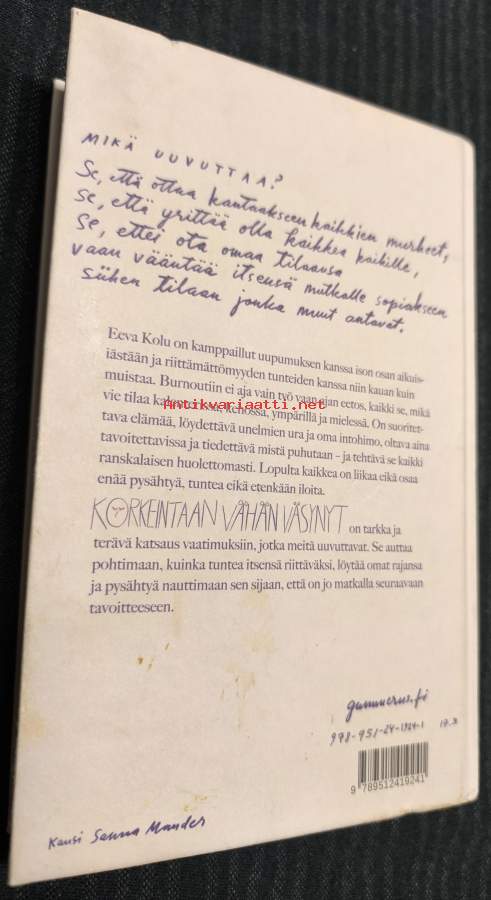 MIKÄ UUVUTTAA?
Se, että ottaa kantaakseen kaikkien murheet,
se, että yrittää olla kaikkea kaikille,
se, ettei ota omaa tilaansa
vaan vääntää itsensä mutkalle sopiakseen
siihen tilaan jonka muut antavat.
Eeva Kolu on kamppaillut uupumuksen kanssa ison osan aikuis-
iästään ja riittämättömyyden tunteiden kanssa niin kauan kuin
muistaa. Burnoutiin ei aja vain työ vaan ajan eetos, kaikki se, mikä
vie tilaa kehossa, ympärillä ja mielessä. On suoritet-
Antikvariaatti.net
tava elämää, löydettävä unelmien ura ja oma intohimo, oltava aina
tavoitettavissa ja tiedettävä mistä puhutaan – ja tehtävä se kaikki
ranskalaisen huolettomasti. Lopulta kaikkea on liikaa eikä osaa
enää pysähtyä, tuntea eikä etenkään iloita.
KORKEINTAAN VÄHÄN VÄSYNYT on tarkka ja
terävä katsaus vaatimuksiin, jotka meitä uuvuttavat. Se auttaa
pohtimaan, kuinka tuntea itsensä riittäväksi, löytää omat rajansa
ja pysähtyä nauttimaan sen sijaan, että on jo matkalla seuraavaan
tavoitteeseen.
gummerus.fi
978-951-24-1924-1 17.3
9 789512 419241
Kansi Sanna Mander